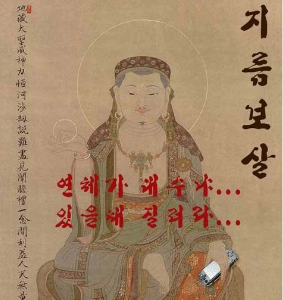 지름보살
地藏大聖威神力恒河沙劫說難盡見聞瞻禮一念間利益人天無量
연혜가 대수냐...
있을때 질러라...